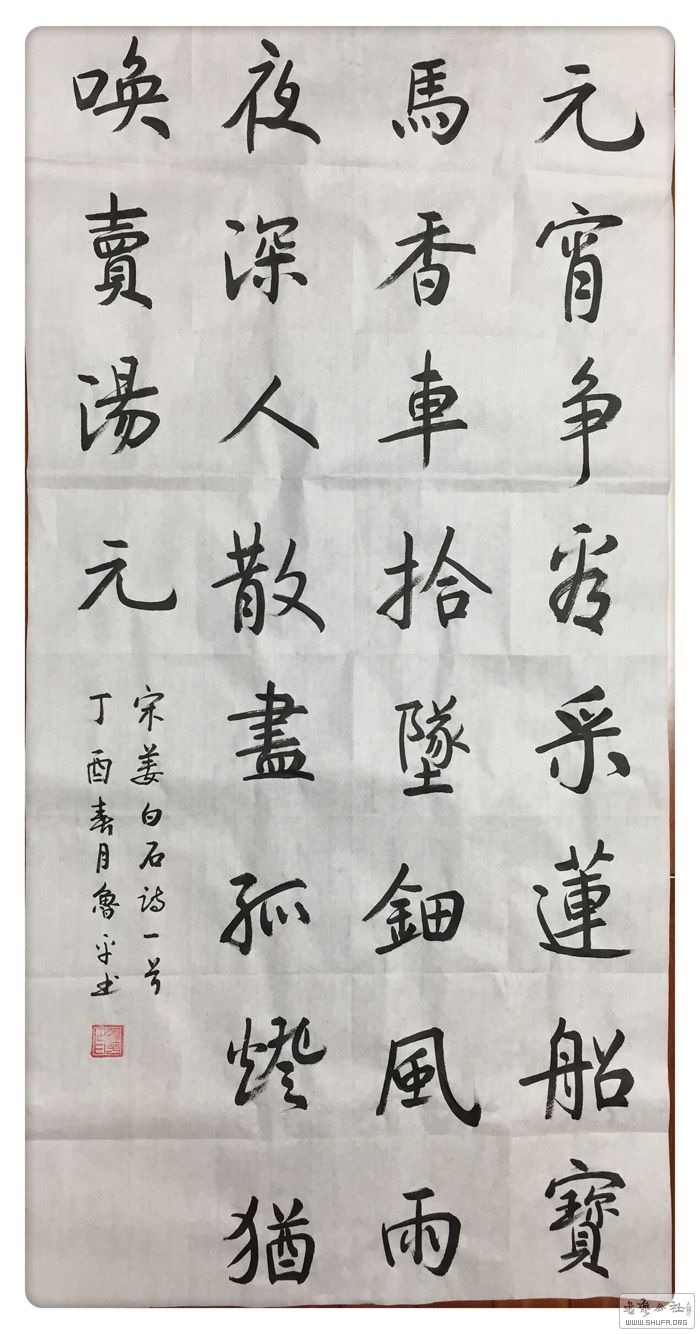 元宵争看采蓮船寶
馬香車拾墜鈿風雨
夜深人散盡孤燈猶
喚賣湯元
宋姜白石詩一首
丁酉春月魯平書
WWW.SHUFA.ORG